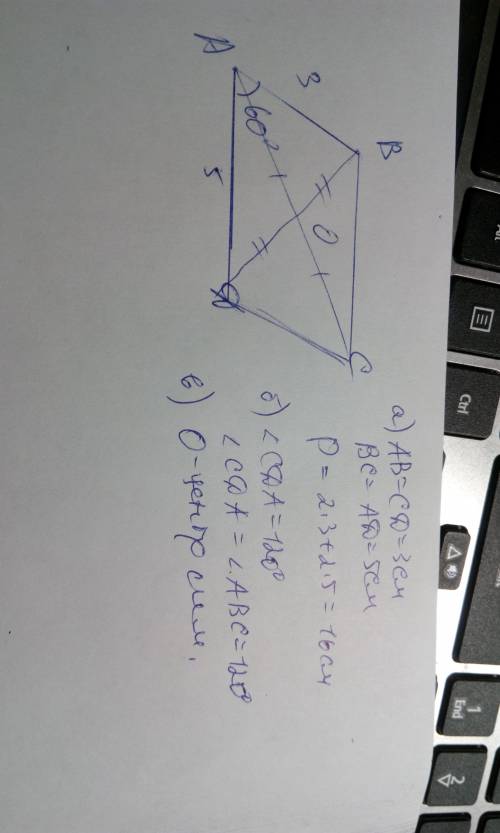 A
3
B
60°
5
O
D
C
а) AB=CD=3см
BC=AD=5см
P=2·3+2·5=16см
б) ∠CDA=120°
∠CDA=∠ABC=120°
в) O-центр симм.
Alt
Ctrl
1
End
2